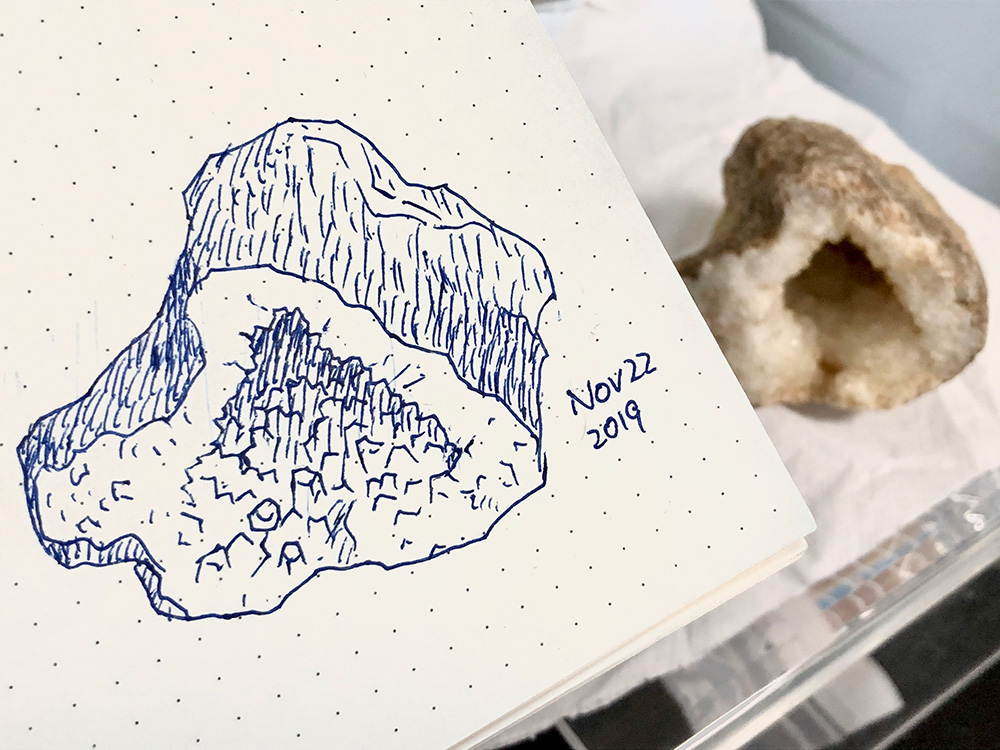 Nov 22
2019